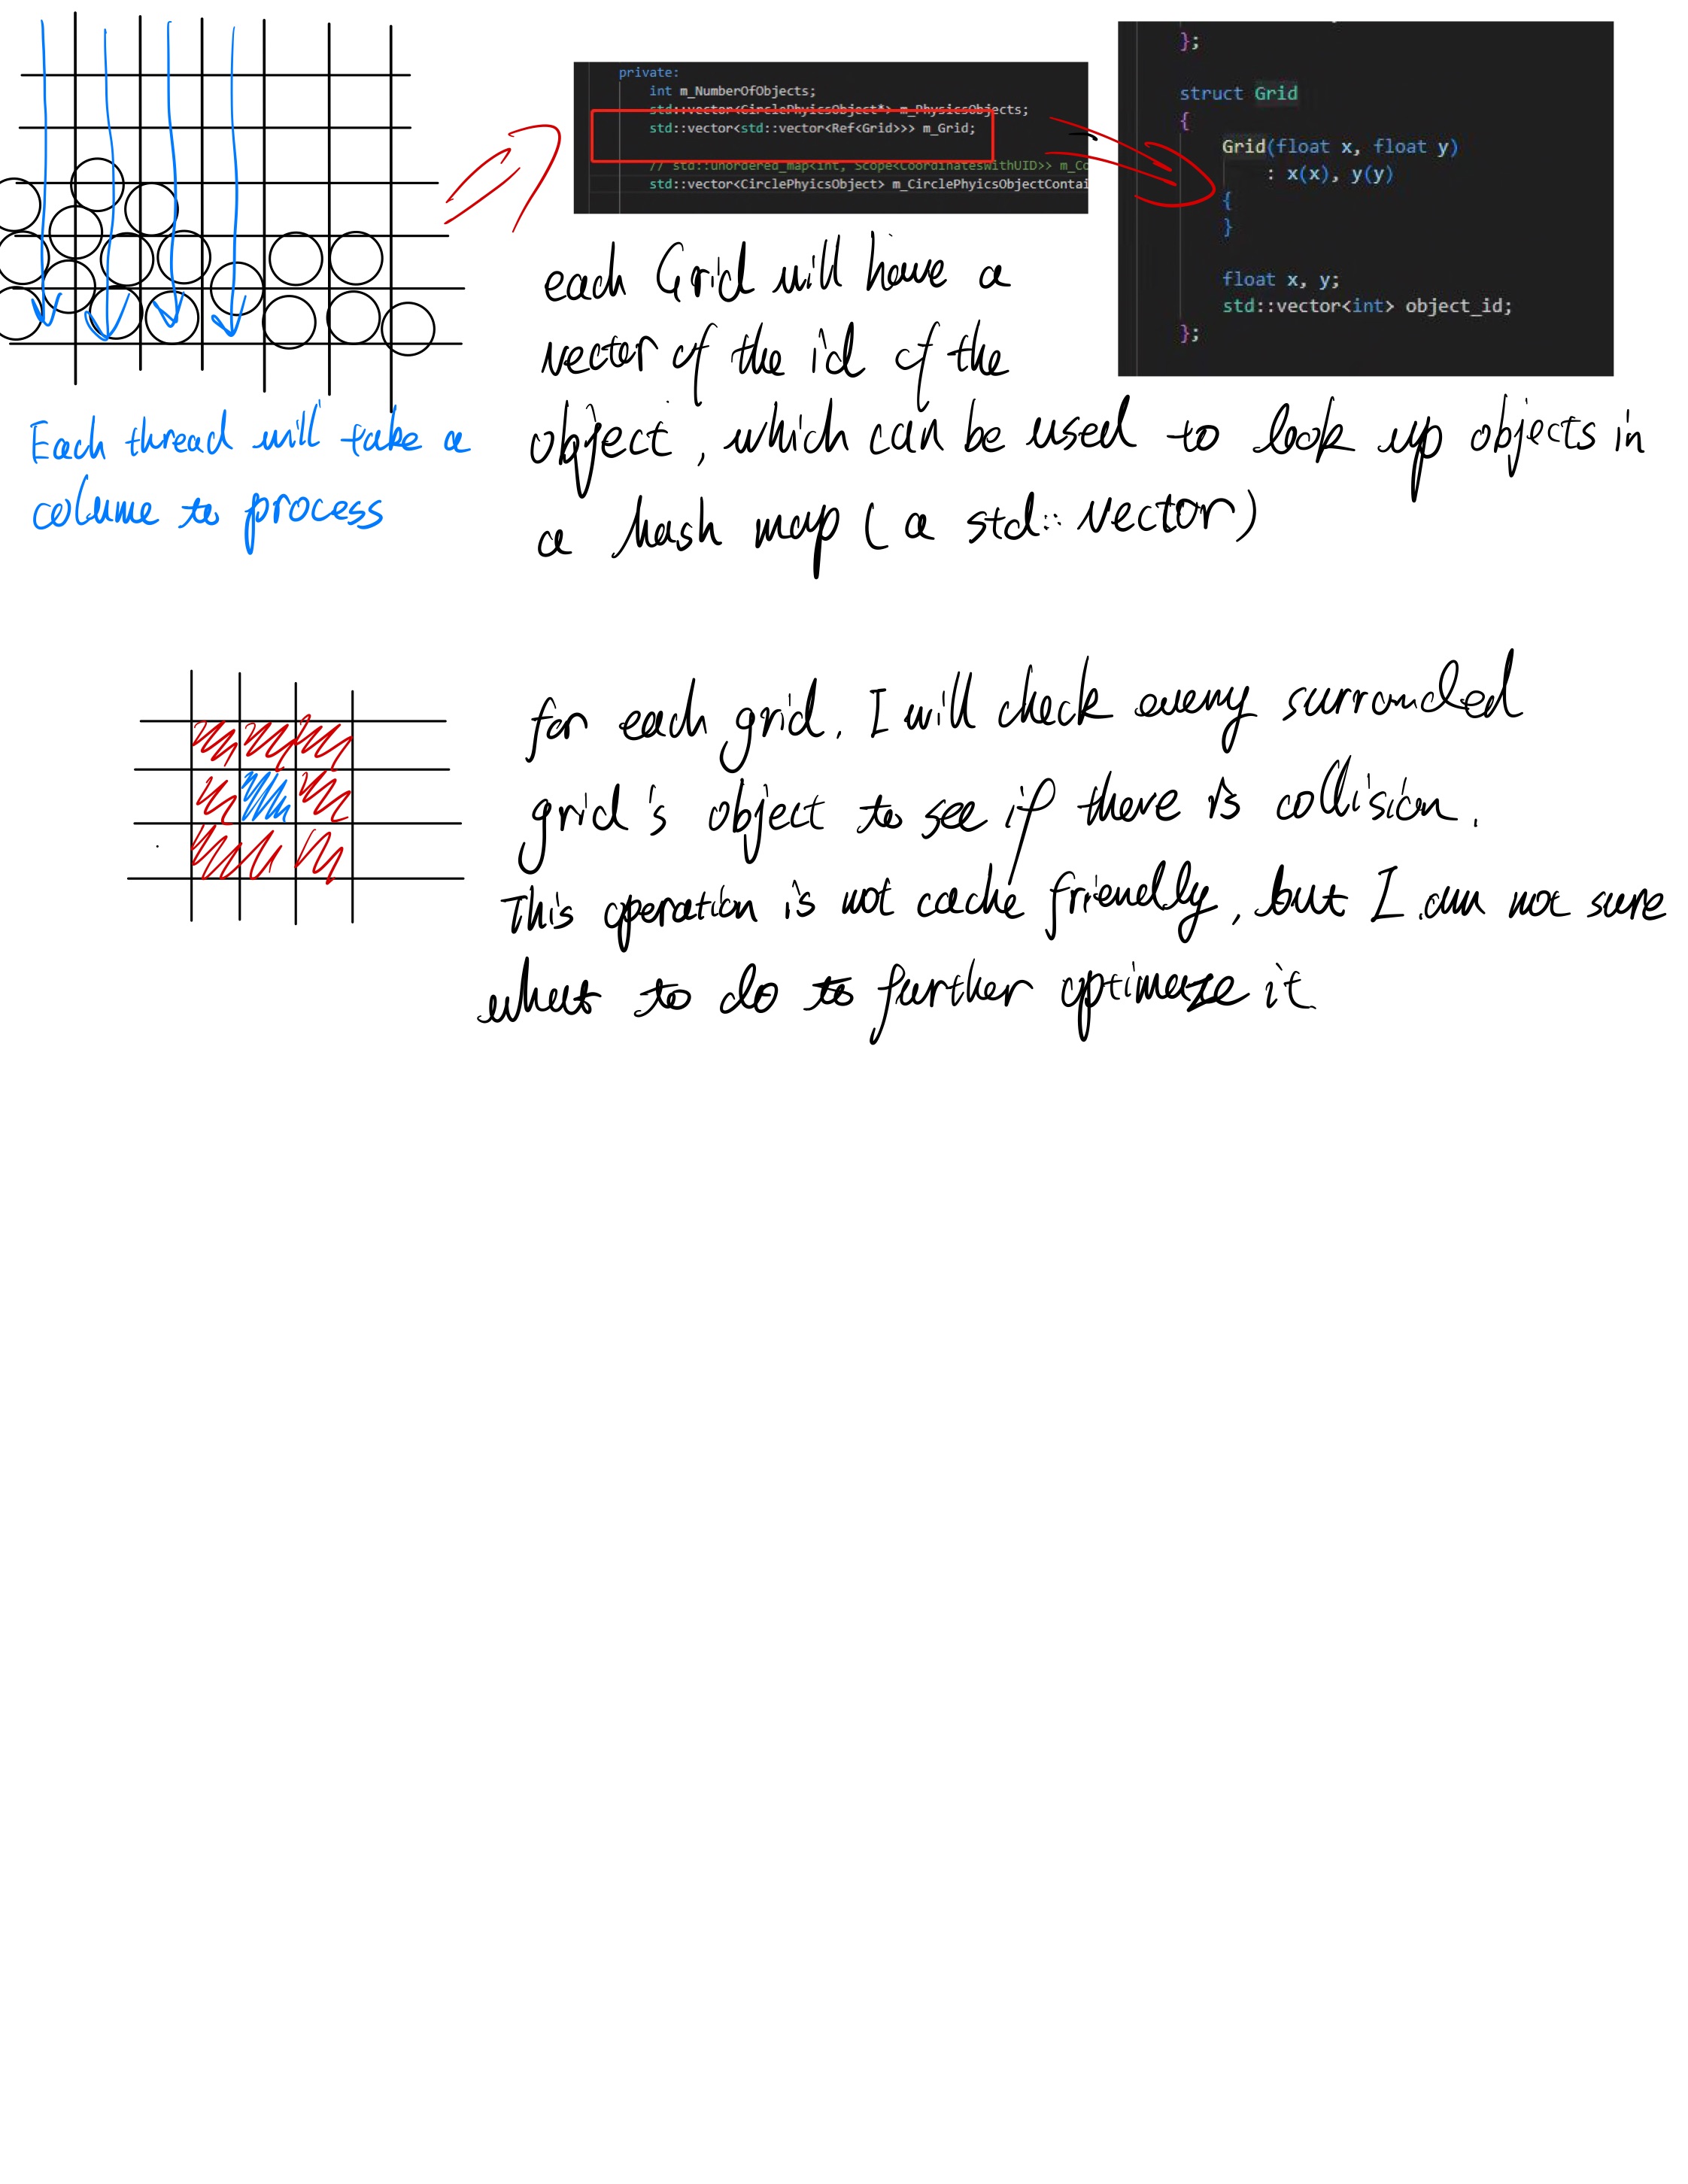 private:
int m_NumberOfObjects;
std::vector<CirclePhyicsObject*> m_PhysicsObjects;
std::vector<std::vector<Ref<Grid>>> m_Grid;
// std::unordered_map<int, Scope<CoordinatesWithUID>> m_Co
std::vector<CirclePhyicsObject> m_CirclePhyicsObjectContai
};
struct Grid
{
Grid(float x, float y)
: x(x), y(y)
{
}
float x, y;
std::vector<int> object_id;
};
Each thread will take a
colume to process
each Grid will have a
vector of the id of the
object, which can be used to look up objects in
a hash map (a std::vector)
for each grid. I will check every surrounded
grid's object to see if there is collision.
This operation is not cache friendly, but I am not sure
what to do to further optimaze it